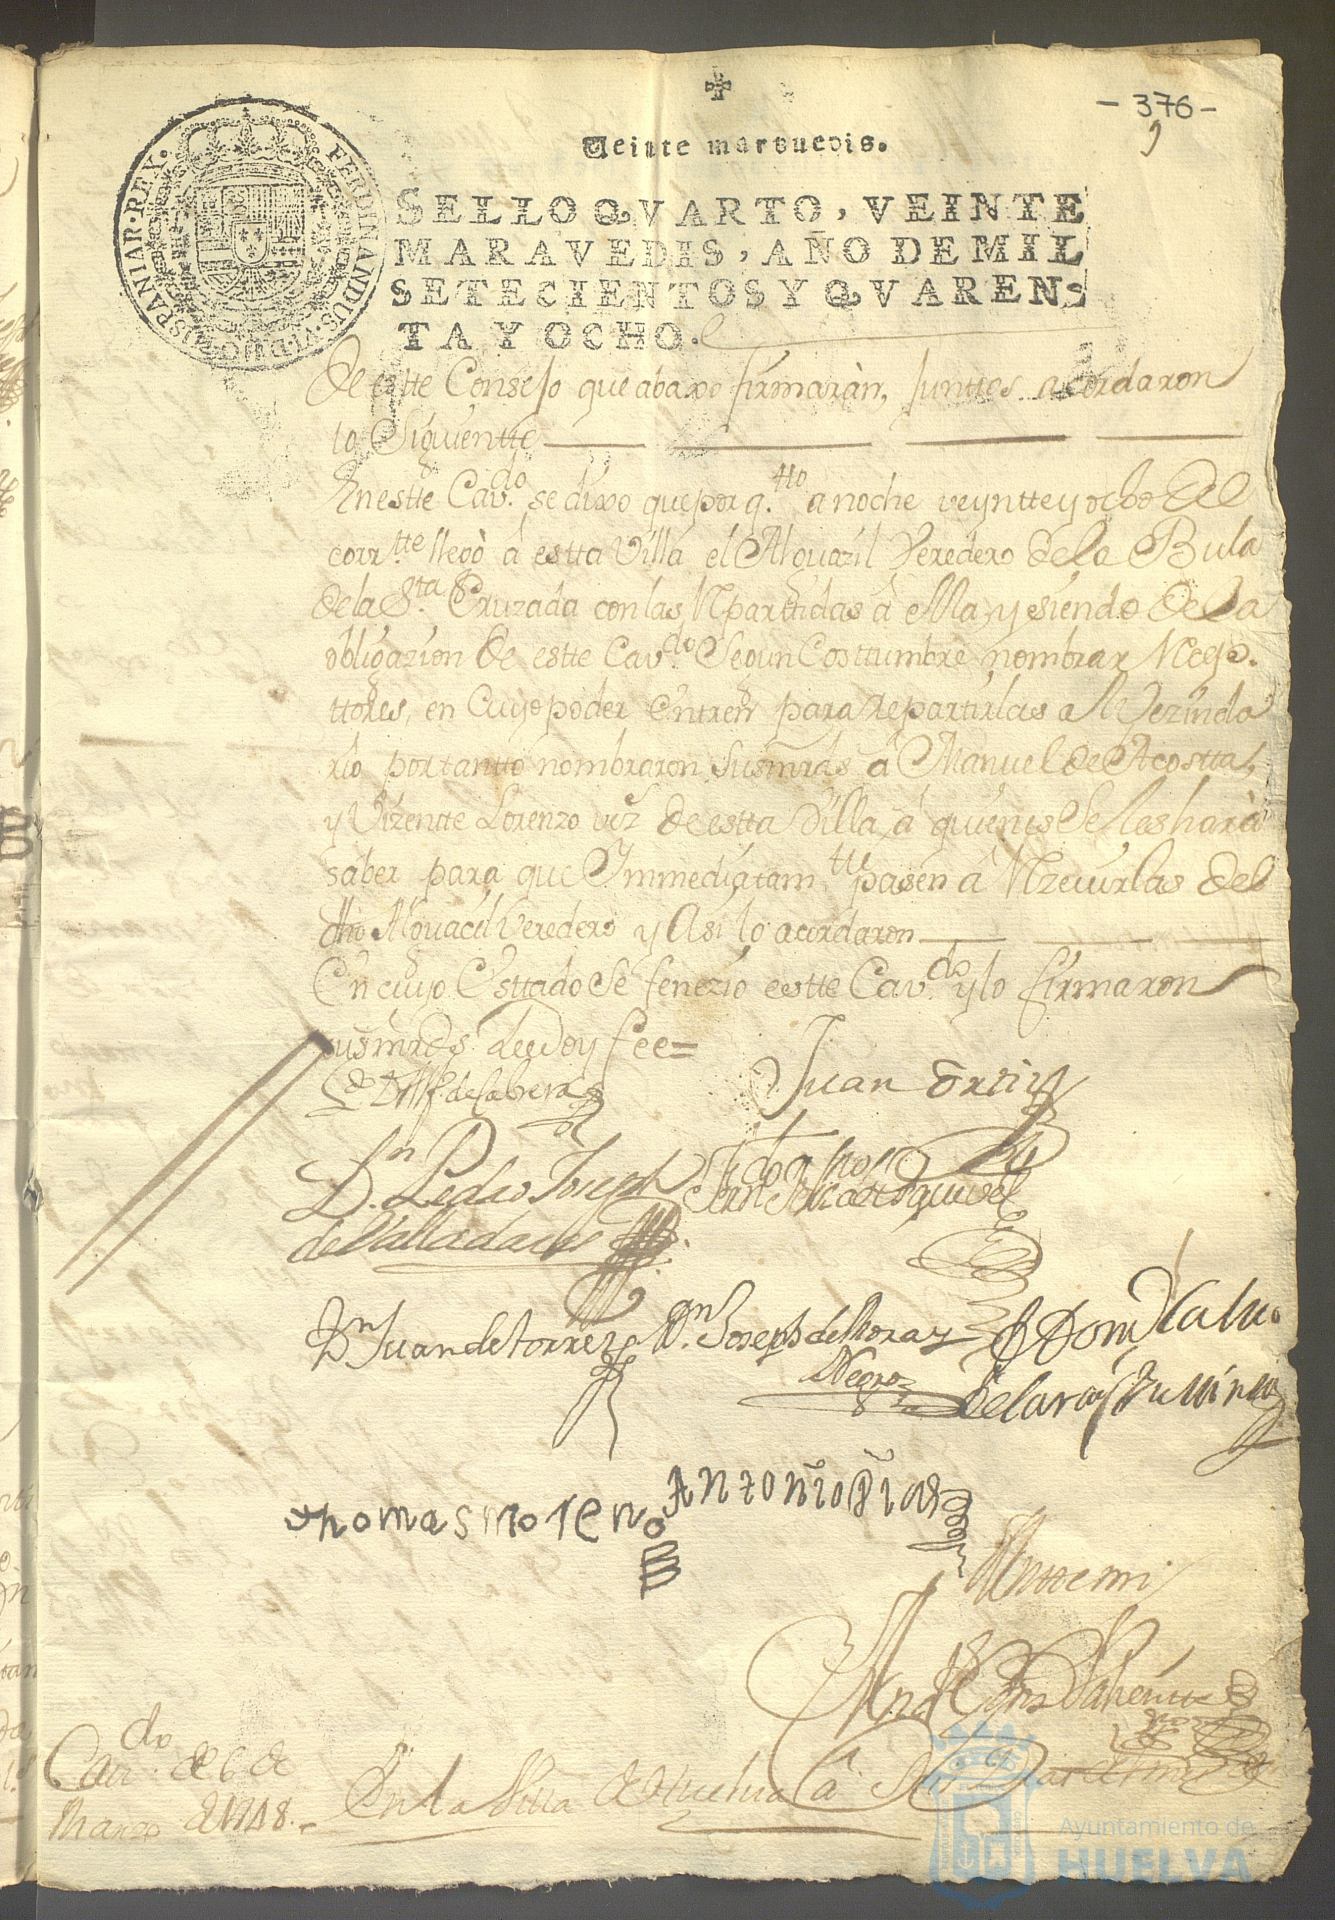 - 376 -
9
Veinte marauedis.
HISPANIAR·REX· FERDINANDUS·VI·D·G·
SELLO QVARTO, VEINTE
MARAVEDIS, AÑO DE MIL
SETECIENTOS Y QVAREN-
TA Y OCHO.
De estte Consejo que abaxo firmaràn, Junttos acordaron
lo Siguientte
En estte Cav.do se dixo que por q.tto a noche veyntte y ocho del
corr.tte llegò â estta Villa el Alguazil Veredero de la Bula
de la S.ta Cruzada con las Repartidas â ella, y siendo de la
obligazion de estte Cav.do Segun Costtumbre nombrar Rcep-
ttores, en cuyo poder entren para repartirlas al Vezinda
rio por tantto nombraron Susmrds â Manuel de Acostta,
y Vizentte Lorenzo vz.s de estta Villa, â quienes Se les harà
saber para que Immediatam.tte pasen â Rzeuirlas del
dho Alguacil Veredero y Asi lo acordaron
En cuyo Esttado Se fenezio estte Cav.do y lo firmaron
susmrds de doy fee=
Juan Ortiz
D.n Pedro Joseph
de Valladares
D.n Juan de torres D.n Joseph de Mora y
Negro
Thomas moreno Antonio Dias
Antte mi
Cav.do de 6 de
Marzo de 1748.
En la Villa de Huelva â
Ayuntamiento de
HUELVA